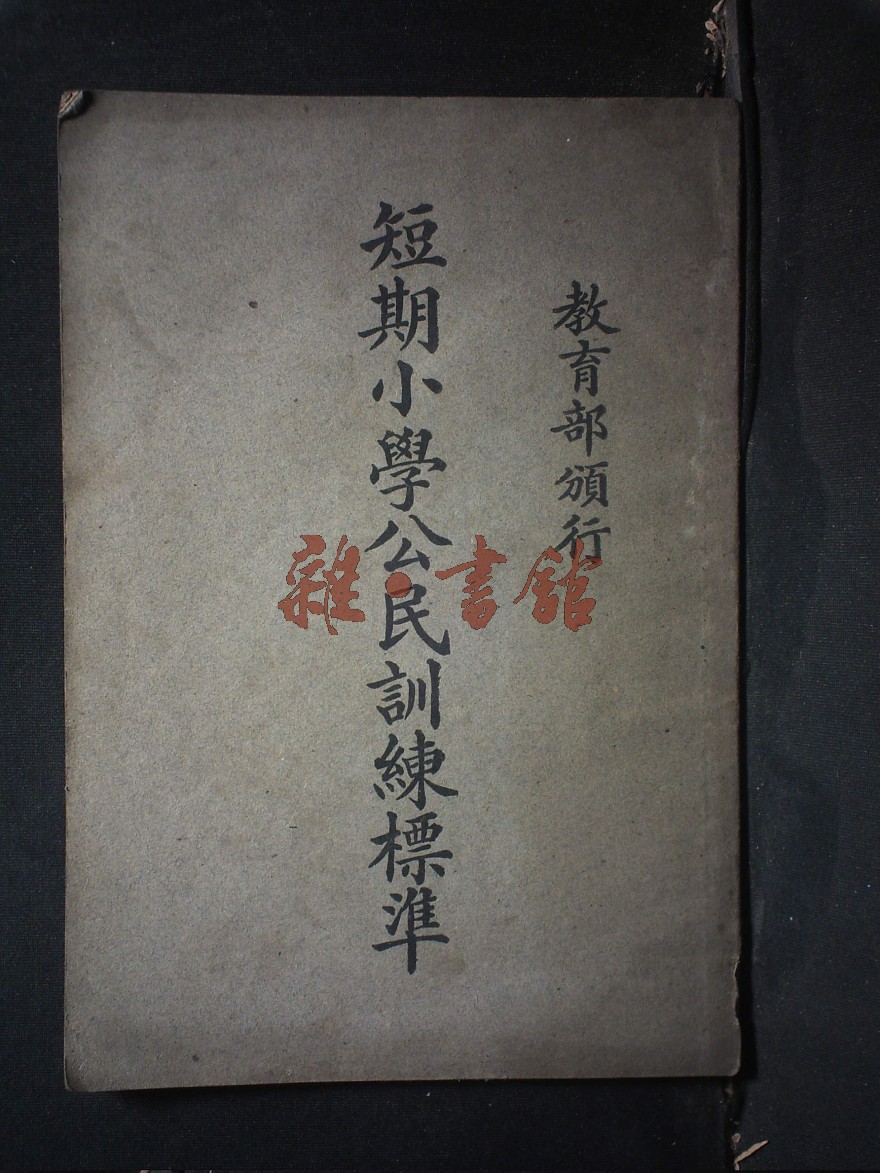 教育部頒行
短期小學公民訓練標準
雜·書館